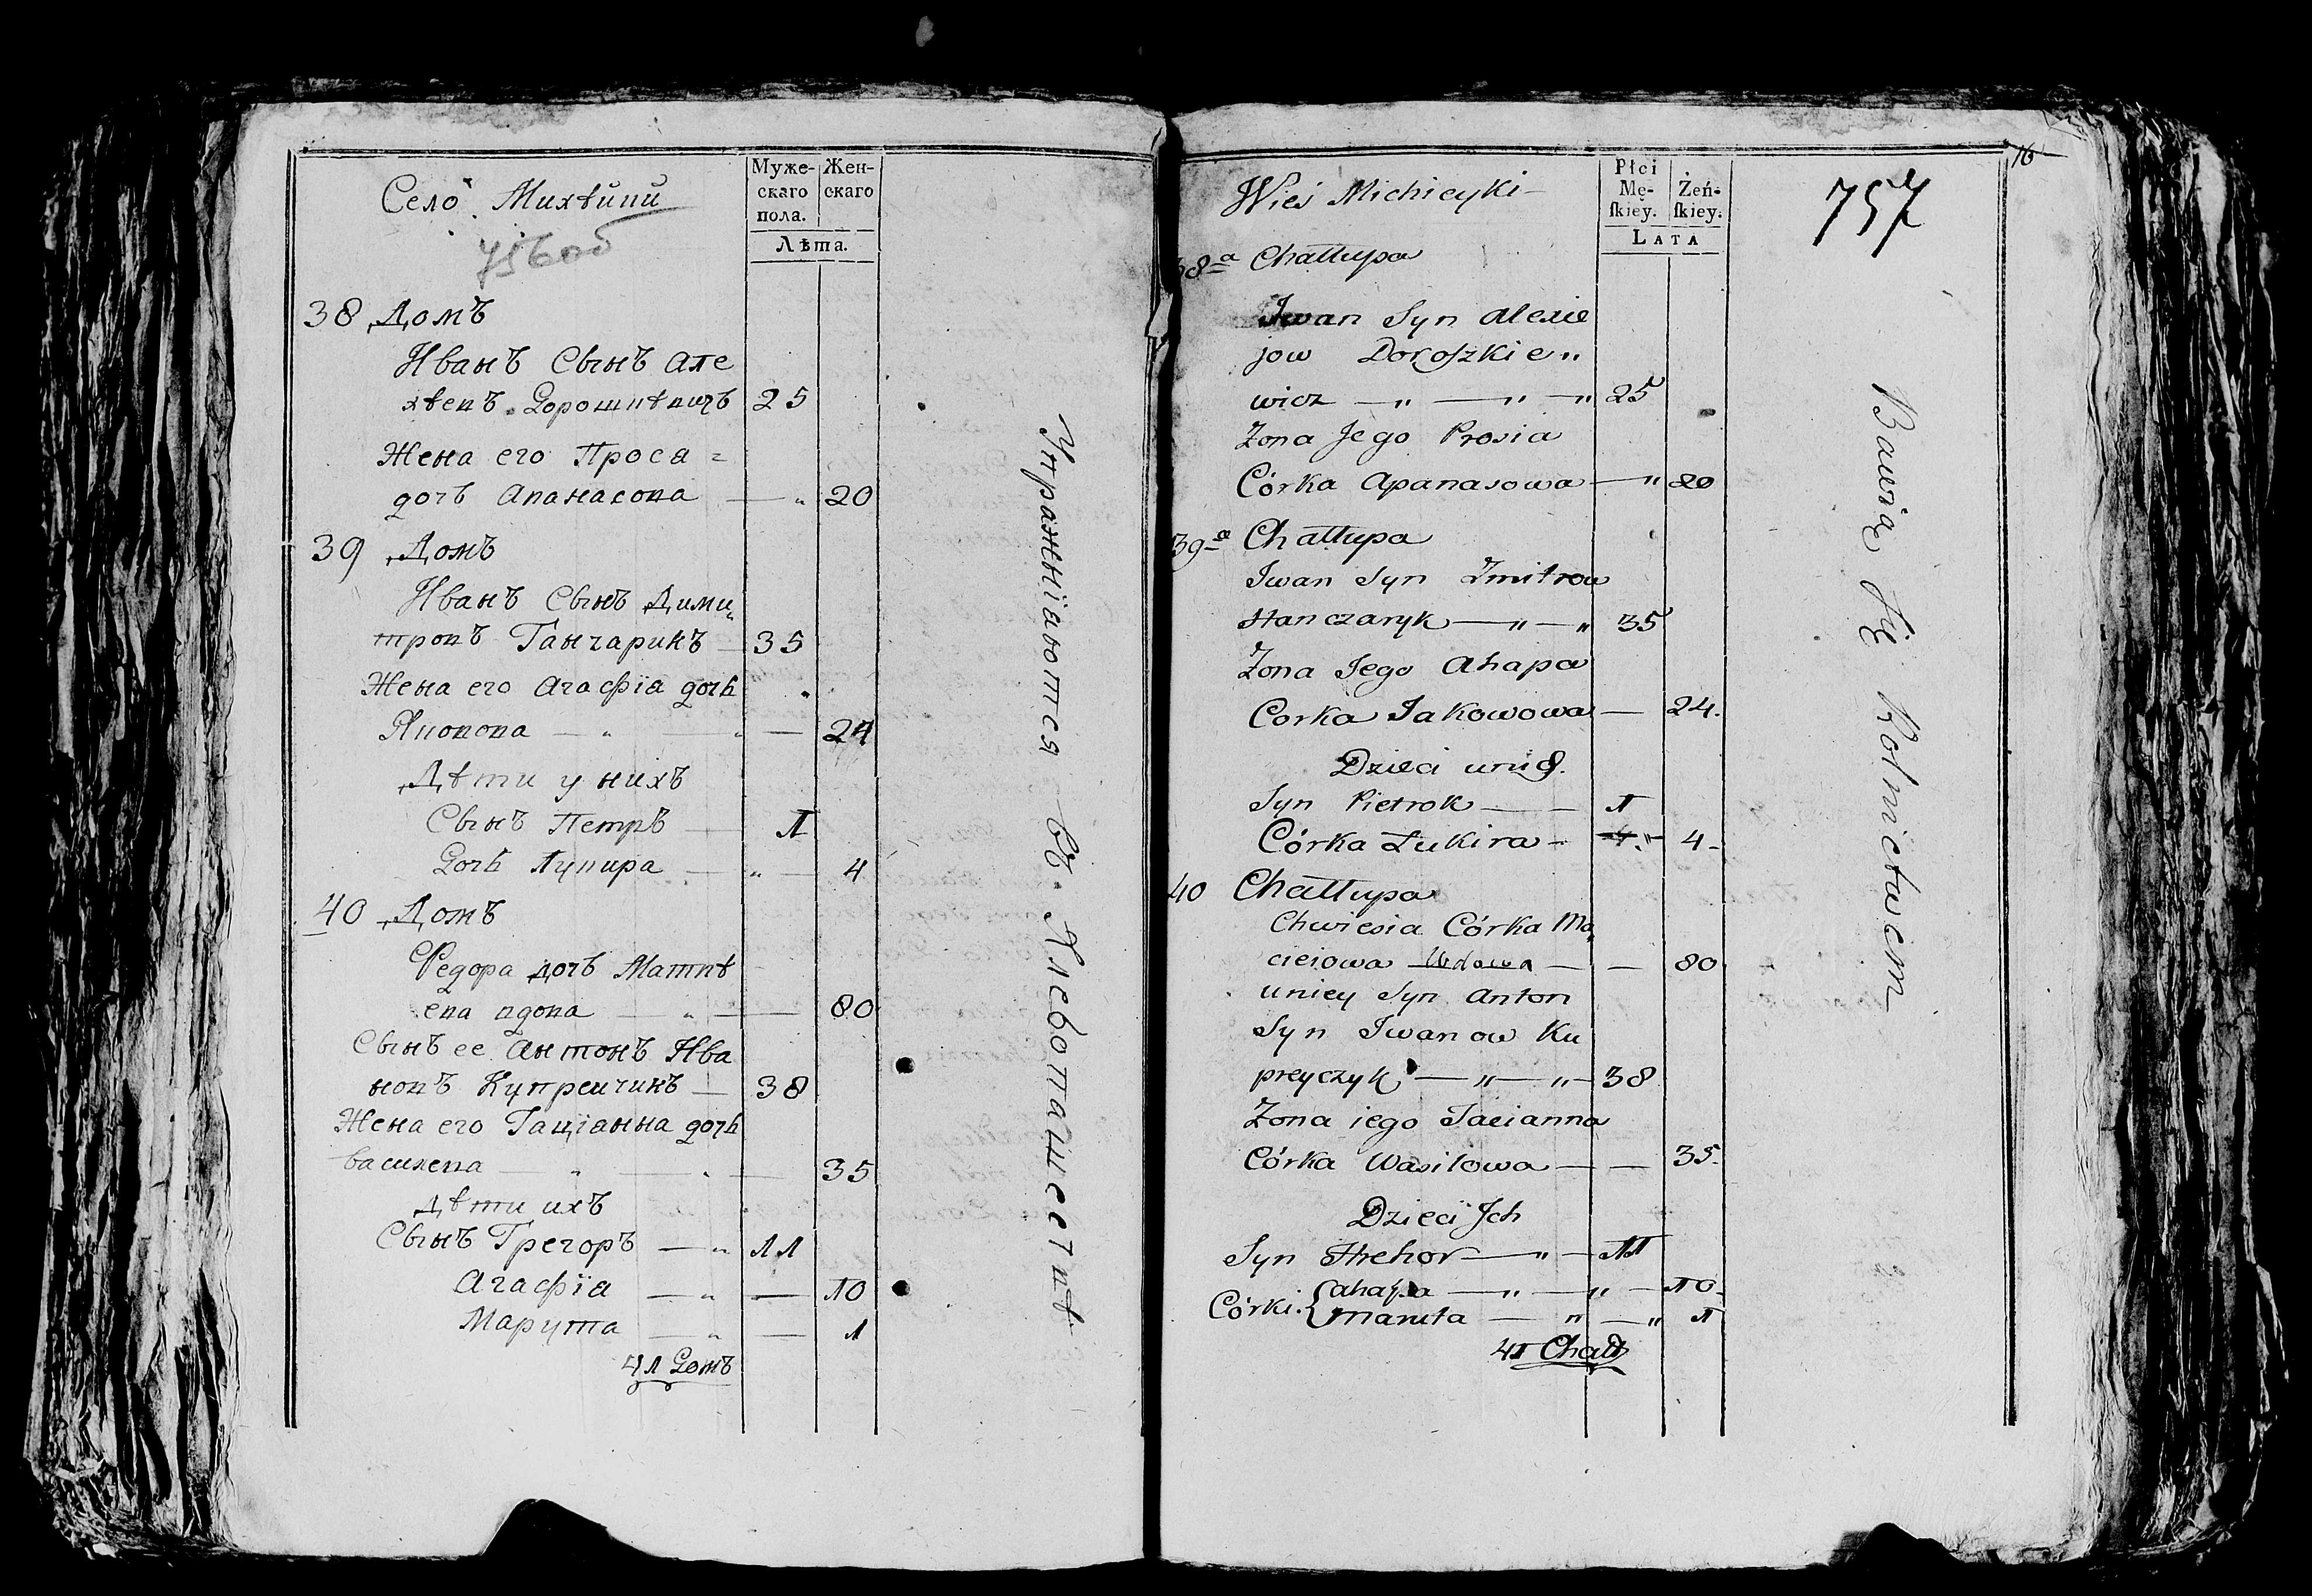 Село Михѣйки
756об
Муже-
скаго
пола.
Жен-
скаго
Лѣта.
38 Домъ
Иванъ Сынъ Але
хѣевъ Дорошкѣвичъ 25
Жена его Прося =
дочъ Апанасова — „ 20
39 Домъ
Иванъ Сынъ Дими„
тровъ Ганчарикъ — 35
Жена его Агафія дочь „
Яковова — „ — „ — 24
Дѣти у нихъ
Сынъ Петръ — 1
Дочь Лукира — „ — 4
40 Домъ
Федора дочъ Матвѣ
ева вдова — „ — 80
Сынъ ее Антонъ Ива
новъ Купрейчикъ — 38
Жена его Таціанна дочь
василева — „ — „ — 35
Дѣти ихъ
Сынъ Грегоръ — „ 11
Агафїа — „ — 10
Марута — „ — 1
41 Домъ
Упражнїаются въ Хлебопашествѣ.
16
Wieś Michieyki —
Płci
Mę-
ſkiey.
Żeń-
ſkiey.
LATA
757
38ᵃ Chałłupa
Iwan Syn Alexie
jow Doroſzkie„
wicz — „ — „ — „ 25
Żona Jego Prosia
Córka Apanasowa — „ 20
39ᵃ Chałłupa
Iwan Syn Zmitrow
Hanczaryk — „ — „ 35
Żona Jego Ahapa
Corka Jakowowa — 24.
Dzieci unich.
Syn Pietrok — — 1
Córka Łukira — 4 -
40 Chałłupa
Chwiesia Córka Ma„
cieiowa Wdowa — — 80
uniey Syn Anton
Syn Iwanow Ku
preyczyk — „ — „ — 38
Żona iego Tacianna
Córka Wasilowa — — 35.
Dzieci Jch
Syn Hrehor — „ — 11
Córki. { ahapa — „ — „ — 10.
Maruta — „ — „ 1
41 Chałł
Bawią się Rolnictwem